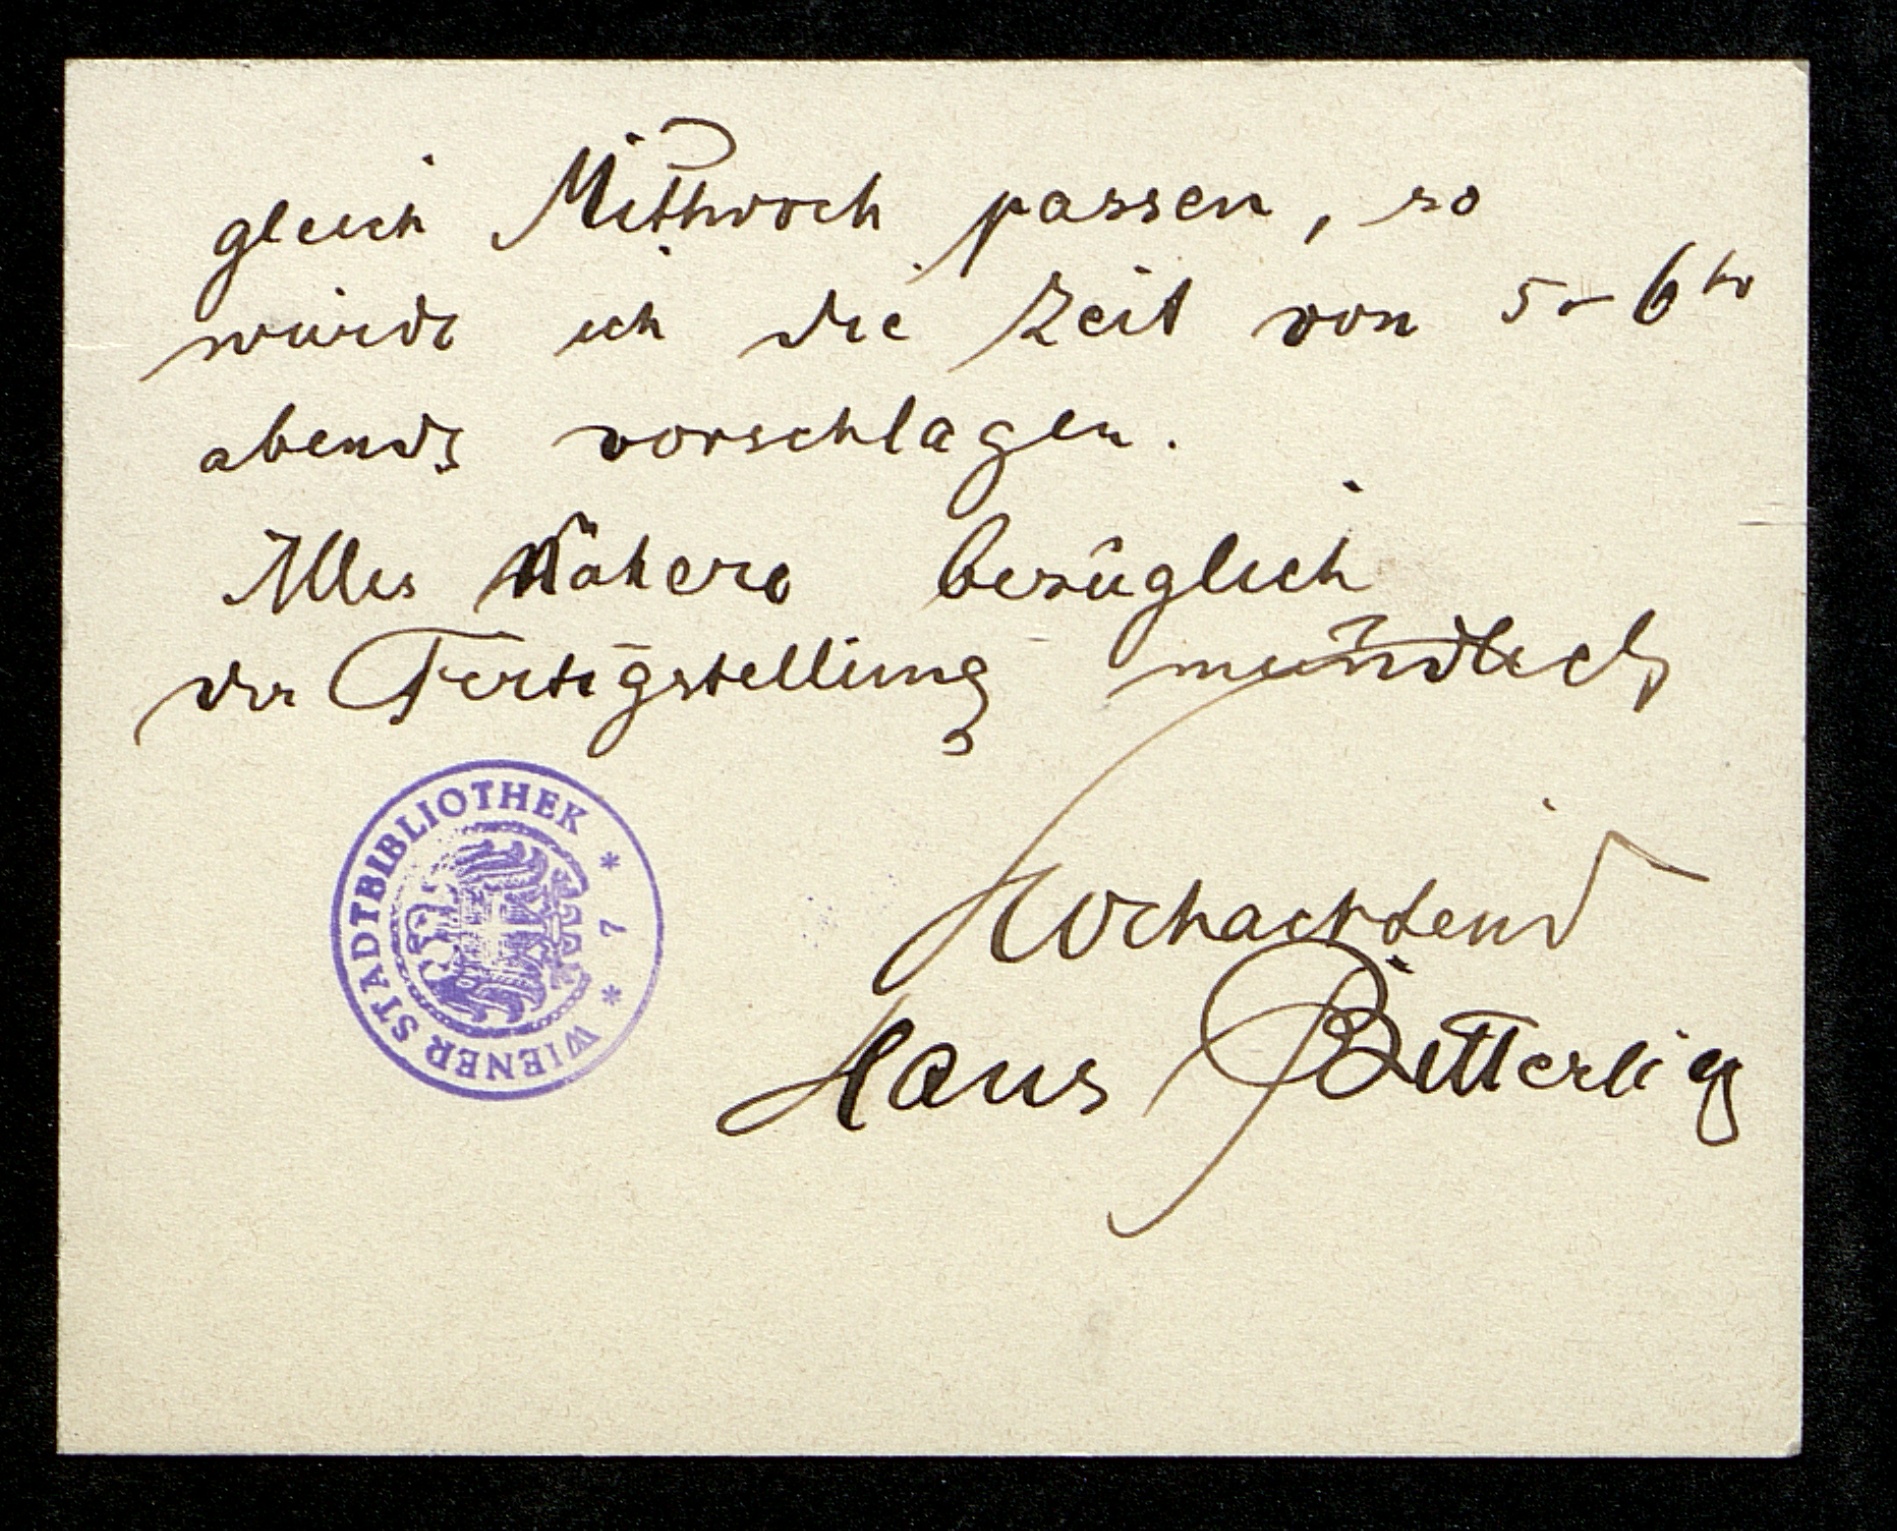 gleich Mittwoch passen, so
würde ich die Zeit von 5–6 h
abends vorschlagen.
Alles Nähere bezüglich
der Fertigstellung mündlich
Hochachtend
Hans Bitterlich
WIENER STADTBIBLIOTHEK * 7 *